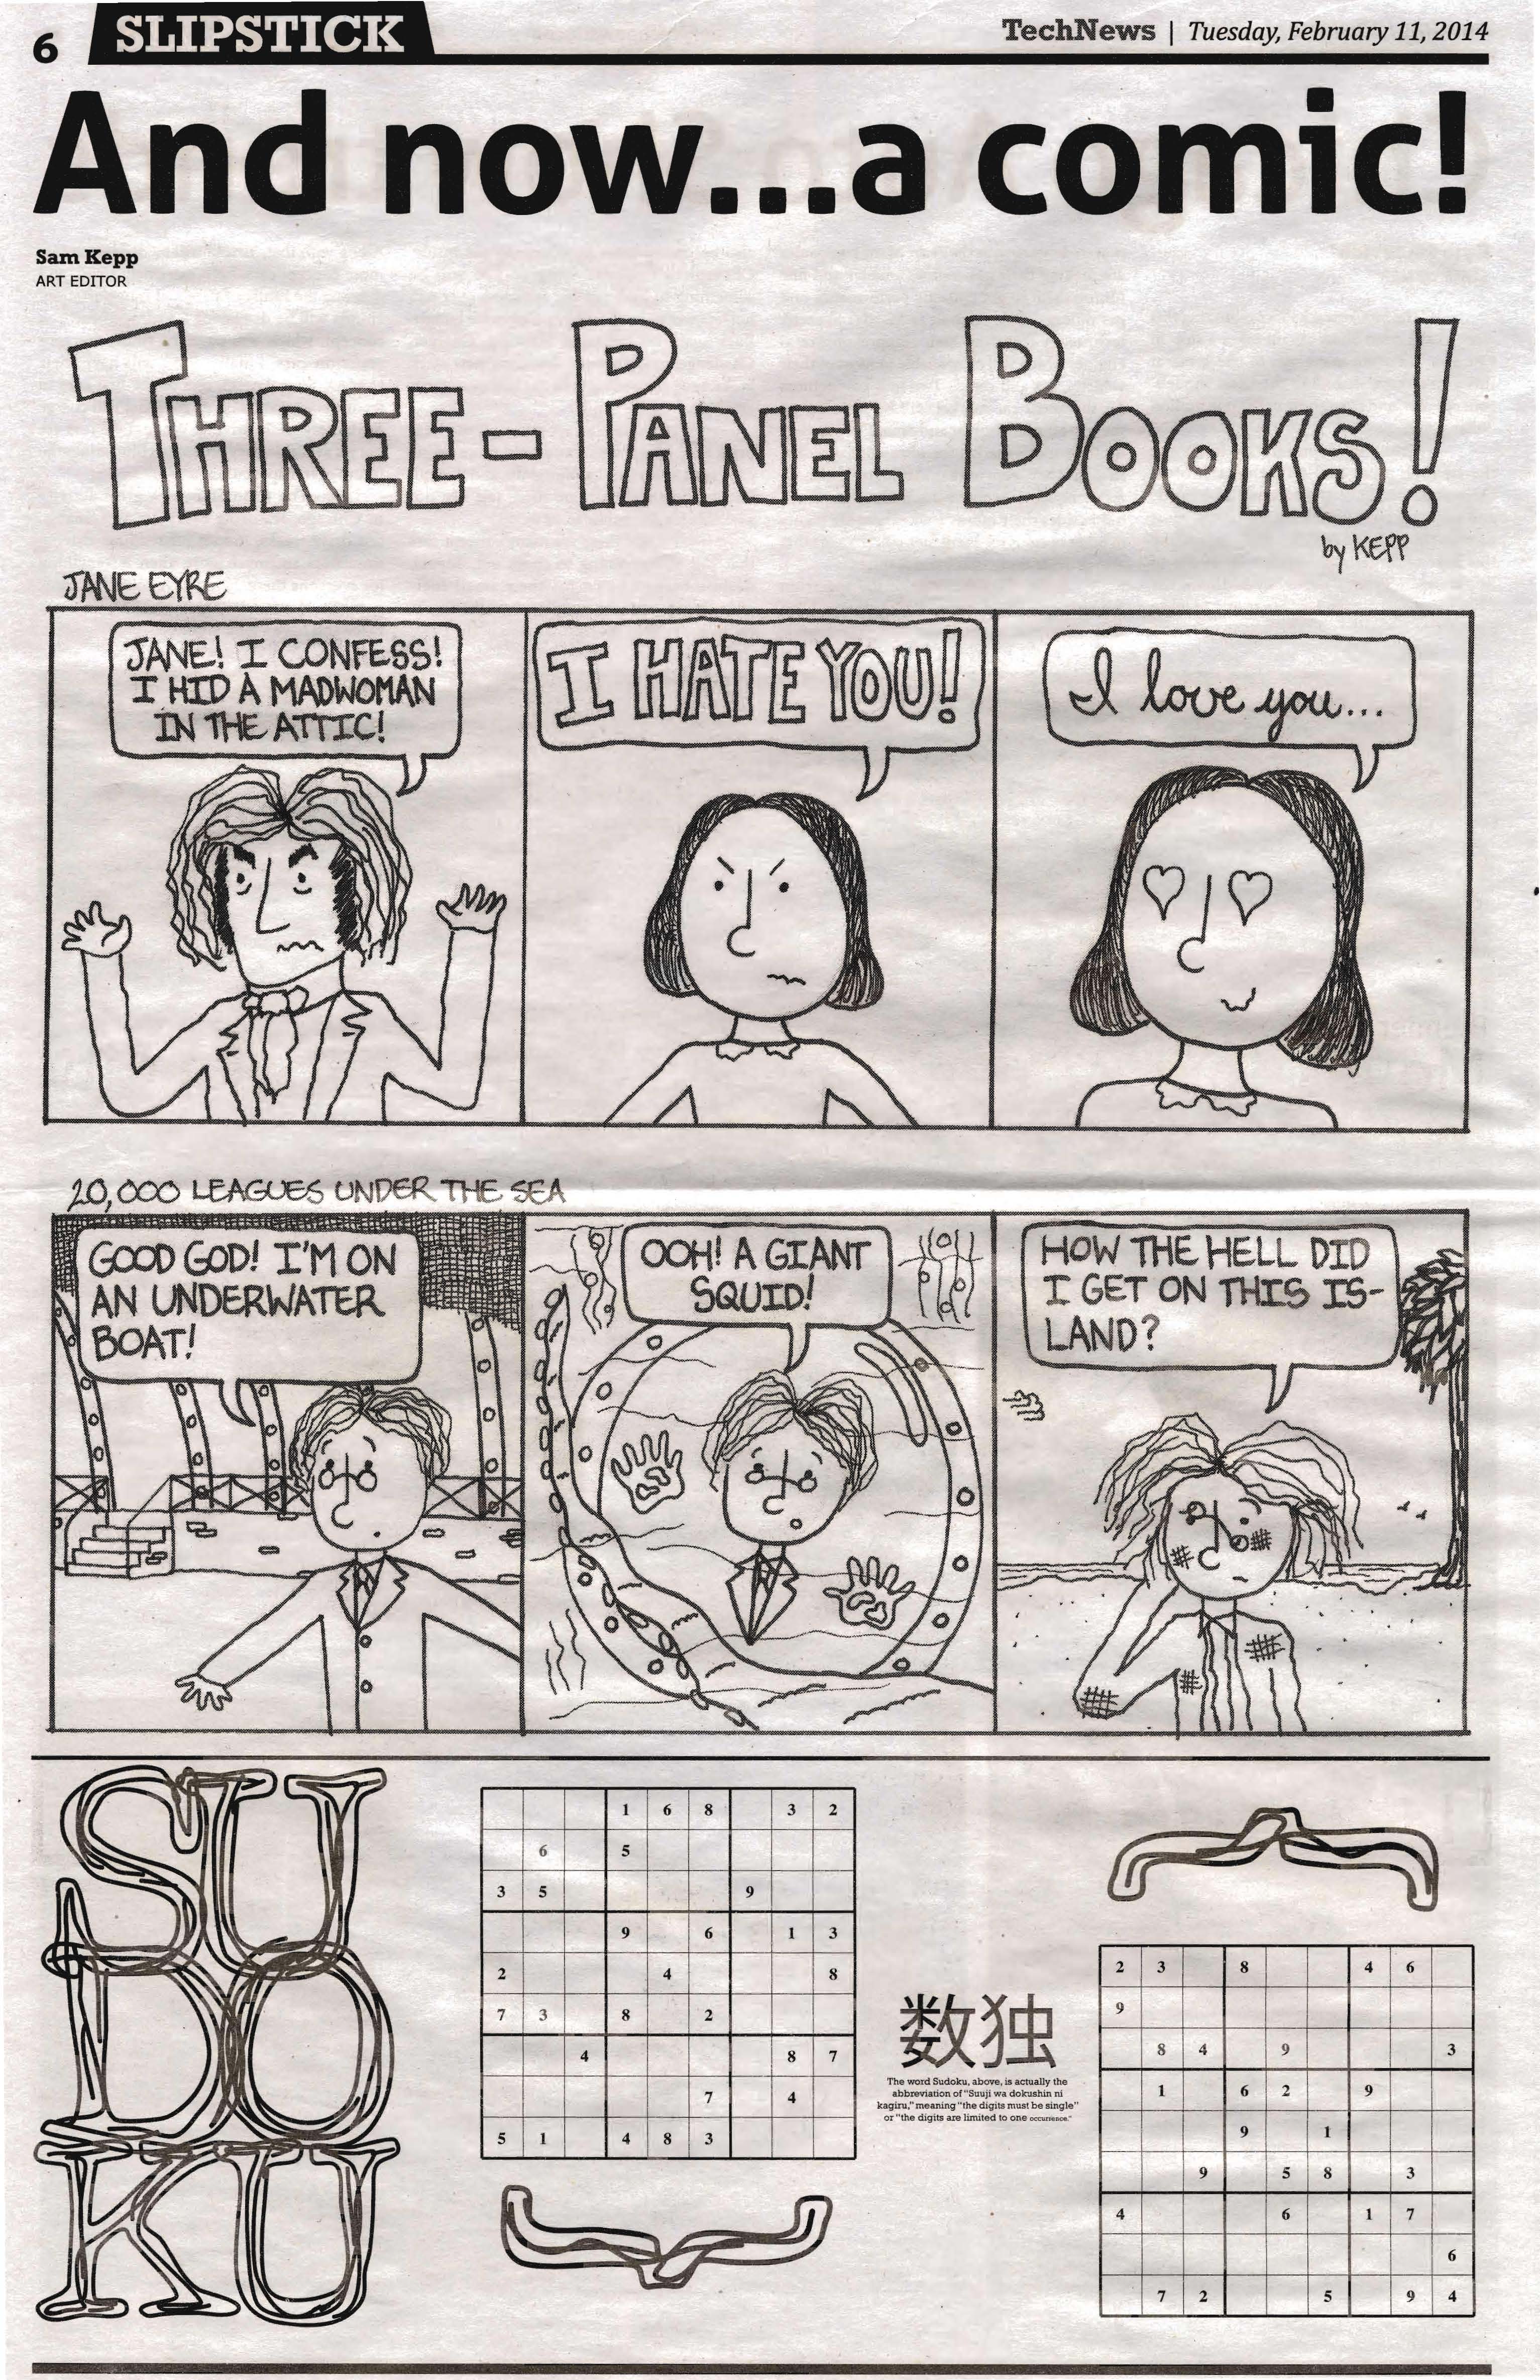 6 SLIPSTICK TechNews | Tuesday, February 11, 2014
And now...a comic!
Sam Kepp
ART EDITOR
THREE-PANEL BOOKS!
by KEPP
JANE EYRE
JANE! I CONFESS!
I HID A MADWOMAN
IN THE ATTIC!
I HATE YOU!
I love you...
20,000 LEAGUES UNDER THE SEA
GOOD GOD! I'M ON
AN UNDERWATER
BOAT!
OOH! A GIANT
SQUID!
HOW THE HELL DID
I GET ON THIS IS-
LAND?
SU
DO
KU
1 6 8 3 2
6 5
3 5 9
9 6 1 3
2 4 8
7 3 8 2
4 8 7
7 4
5 1 4 8 3
数独
The word Sudoku, above, is actually the
abbreviation of "Suuji wa dokushin ni
kagiru," meaning "the digits must be single"
or "the digits are limited to one occurrence."
2 3 8 4 6
9
8 4 9 3
1 6 2 9
9 1
9 5 8 3
4 6 1 7
6
7 2 5 9 4